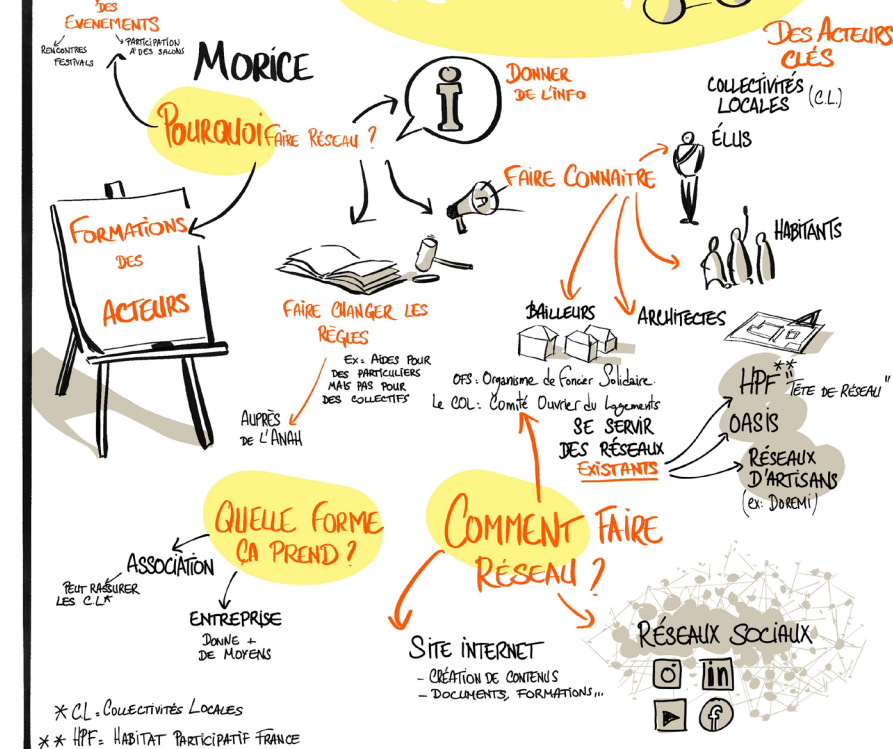 DES
EVENEMENTS
RENCONTRES
FESTIVALS
PARTICIPATION
A DES SALONS
MORICE
POURQUOI FAIRE RÉSEAU ?
i
DONNER
DE L'INFO
DES ACTEURS
CLÉS
COLLECTIVITÉS
LOCALES (C.L.)
ÉLUS
FAIRE CONNAITRE
HABITANTS
FORMATIONS
DES
ACTEURS
FAIRE CHANGER LES
RÈGLES
EX : AIDES POUR
DES PARTICULIERS
MAIS PAS POUR
DES COLLECTIFS
AUPRÈS
DE L'ANAH
BAILLEURS
ARCHITECTES
OFS : Organisme de Foncier Solidaire.
Le COL : Comité Ouvrier du Logements
SE SERVIR
DES RÉSEAUX
EXISTANTS
HPF** "TÊTE DE RÉSEAU"
OASIS
RÉSEAUX
D'ARTISANS
(ex: DOREMI)
QUELLE FORME
ÇA PREND ?
ASSOCIATION
PEUT RASSURER
LES C.L*
ENTREPRISE
DONNE +
DE MOYENS
COMMENT FAIRE
RÉSEAU ?
SITE INTERNET
- CRÉATION DE CONTENUS
- DOCUMENTS, FORMATIONS...
RÉSEAUX SOCIAUX
in
f
* CL = COLLECTIVITÉS LOCALES
** HPF = HABITAT PARTICIPATIF FRANCE